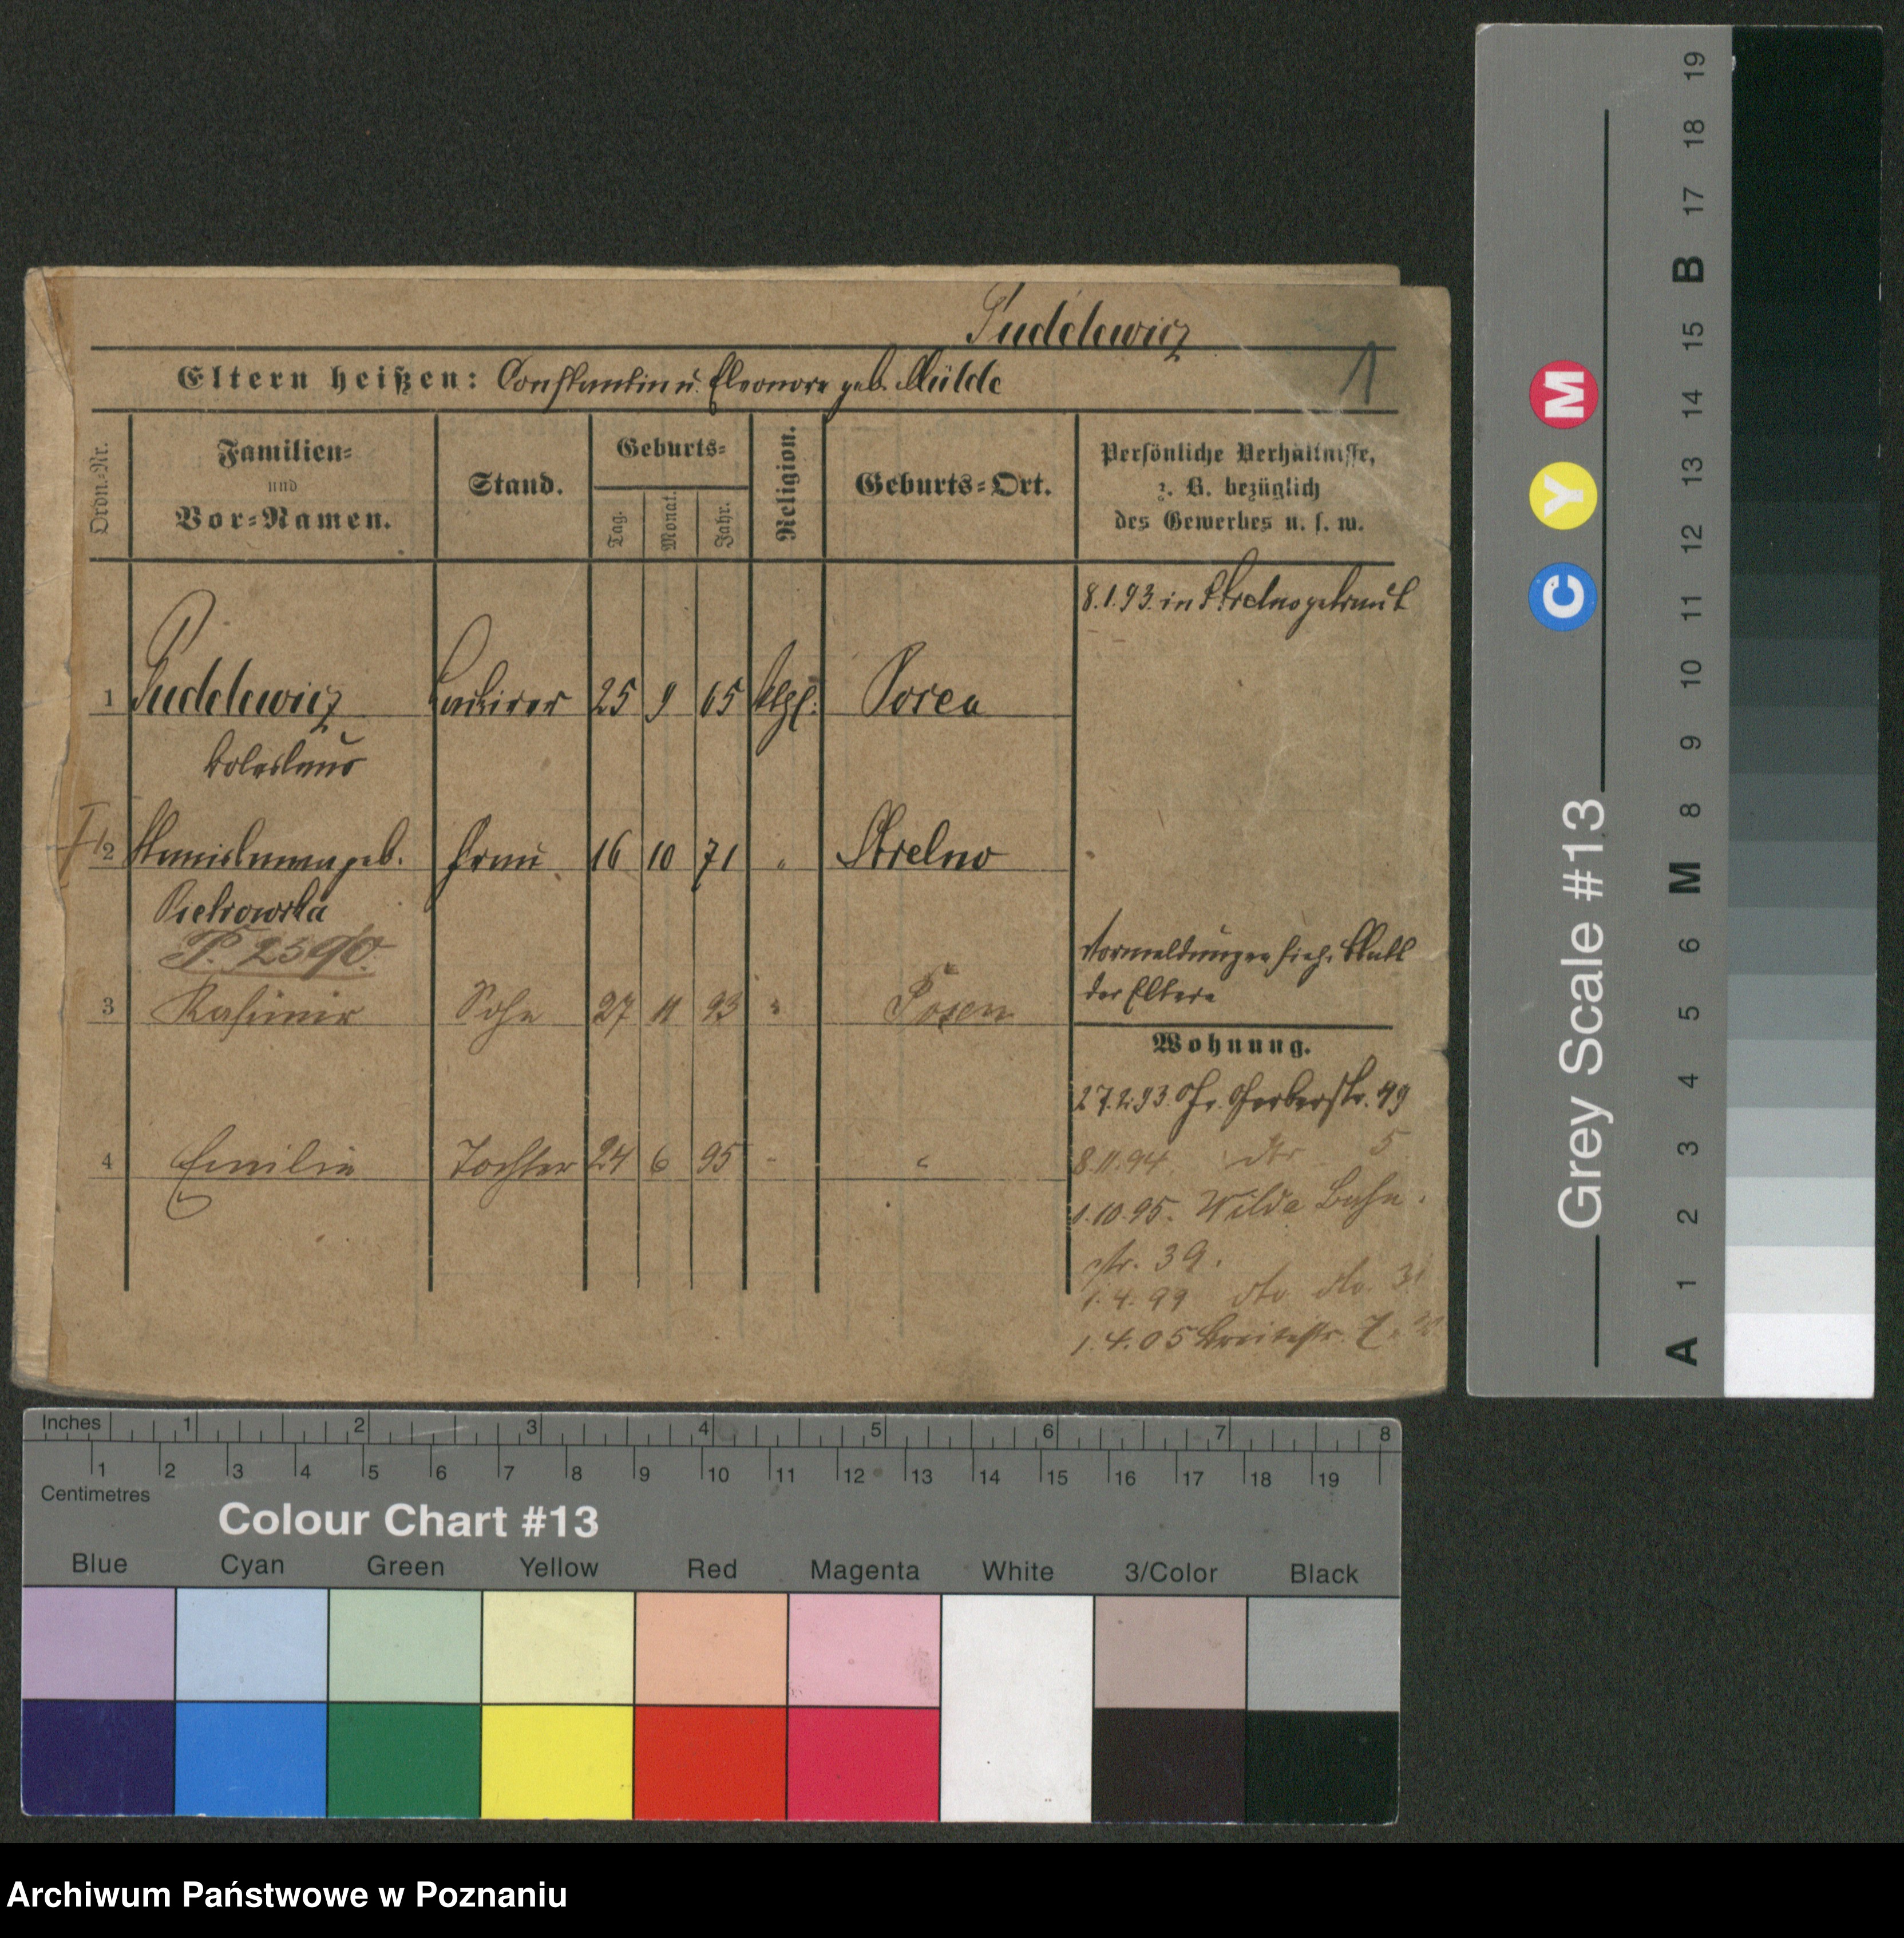 Pudelewicz
1
Eltern heißen: Constantin u. Eleonore geb. Mülde
Ordn.-Nr.
Familien-
und
Vor-Namen.
Stand.
Geburts-
Tag.
Monat.
Jahr.
Religion.
Geburts-Ort.
Persönliche Verhältnisse,
z. B. bezüglich
des Gewerbes u. s. w.
8.1.93. in Strelno getraut
1 Pudelewicz Lackirer 25 9 65 ktgl.
Boleslaus
2 Stanislawa geb. Frau 16 10 71 " Strelno
Pietrowska
P. 2390.
Vormeldungen sieh. Blatt
der Eltern
3 Kasimir Sohn 27 11 93 " Posen
Wohnung.
27.2.93. Gr. Gerberstr. 49
8.11.94. dto 5
4 Emilie Tochter 24 6 95 " "
1.10.95. Wilda Bahn
str. 39.
1.4.99 dto dto. 31
1.4.05 Breitestr. 7.
Inches 1 2 3 4 5 6 7 8
1 2 3 4 5 6 7 8 9 10 11 12 13 14 15 16 17 18 19
Centimetres
Colour Chart #13
Blue Cyan Green Yellow Red Magenta White 3/Color Black
Grey Scale #13
C Y M
A 1 2 3 4 5 6 M 8 9 10 11 12 13 14 15 B 17 18 19
Archiwum Państwowe w Poznaniu